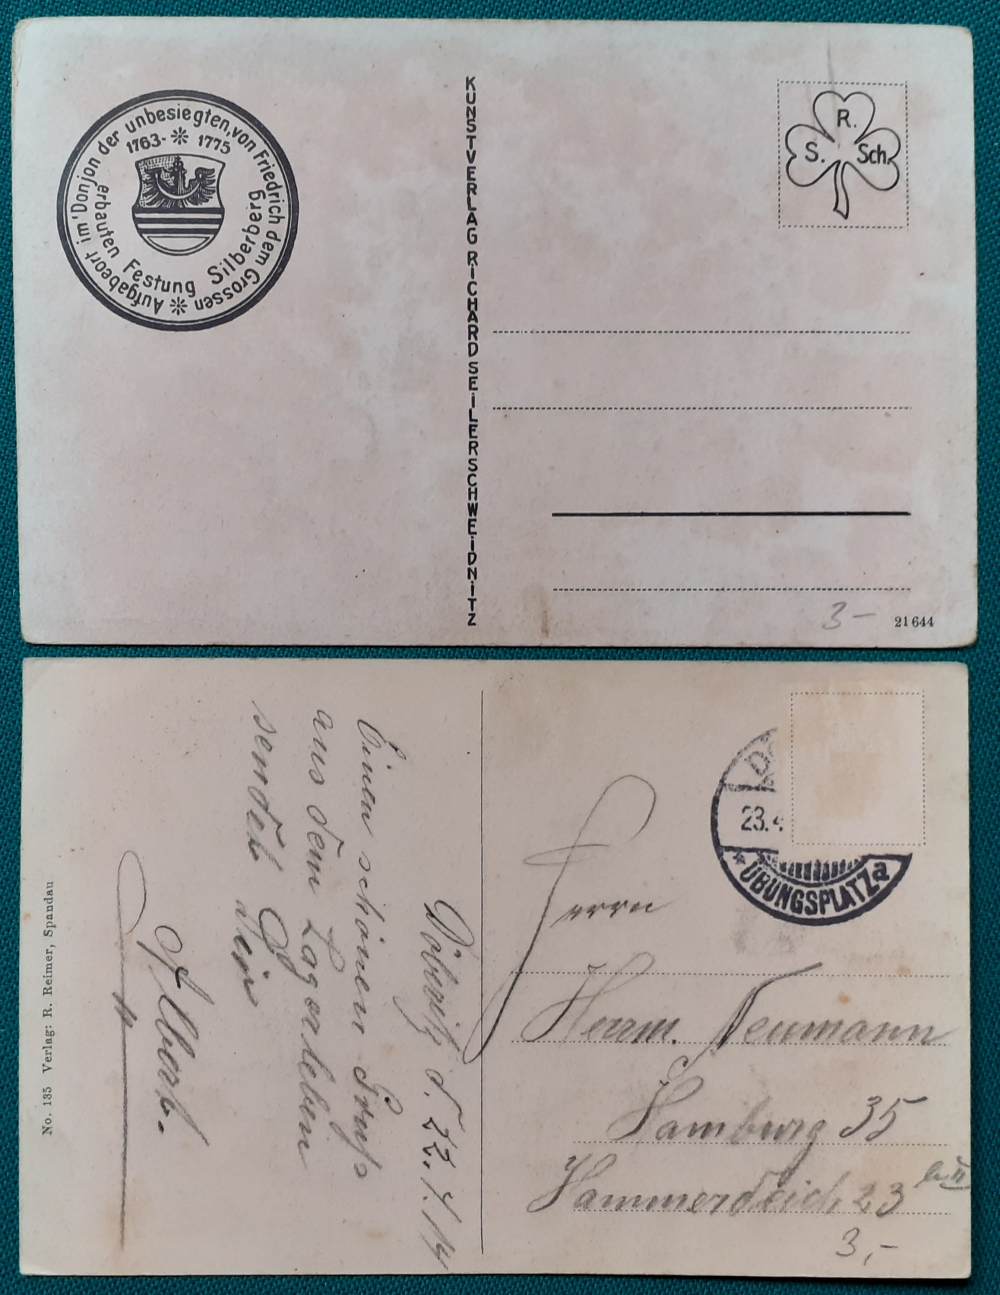 Aufgabeort im "Donjon der unbesiegten, von Friedrich dem Grossen
erbauten Festung Silberberg
1763- 1775
KUNSTVERLAG RICHARD SEILER SCHWEIDNITZ
R.
S. Sch.
3-
21644
No. 135 Verlag: R. Reimer, Spandau
d. 22.4.14
Einen schönen Gruß
aus dem Lagerleben
sendet Dir
23.4
ÜBUNGSPLATZ a
Herrn
Herm. Neumann
Hamburg 35
Hammerdeich 23
3,-